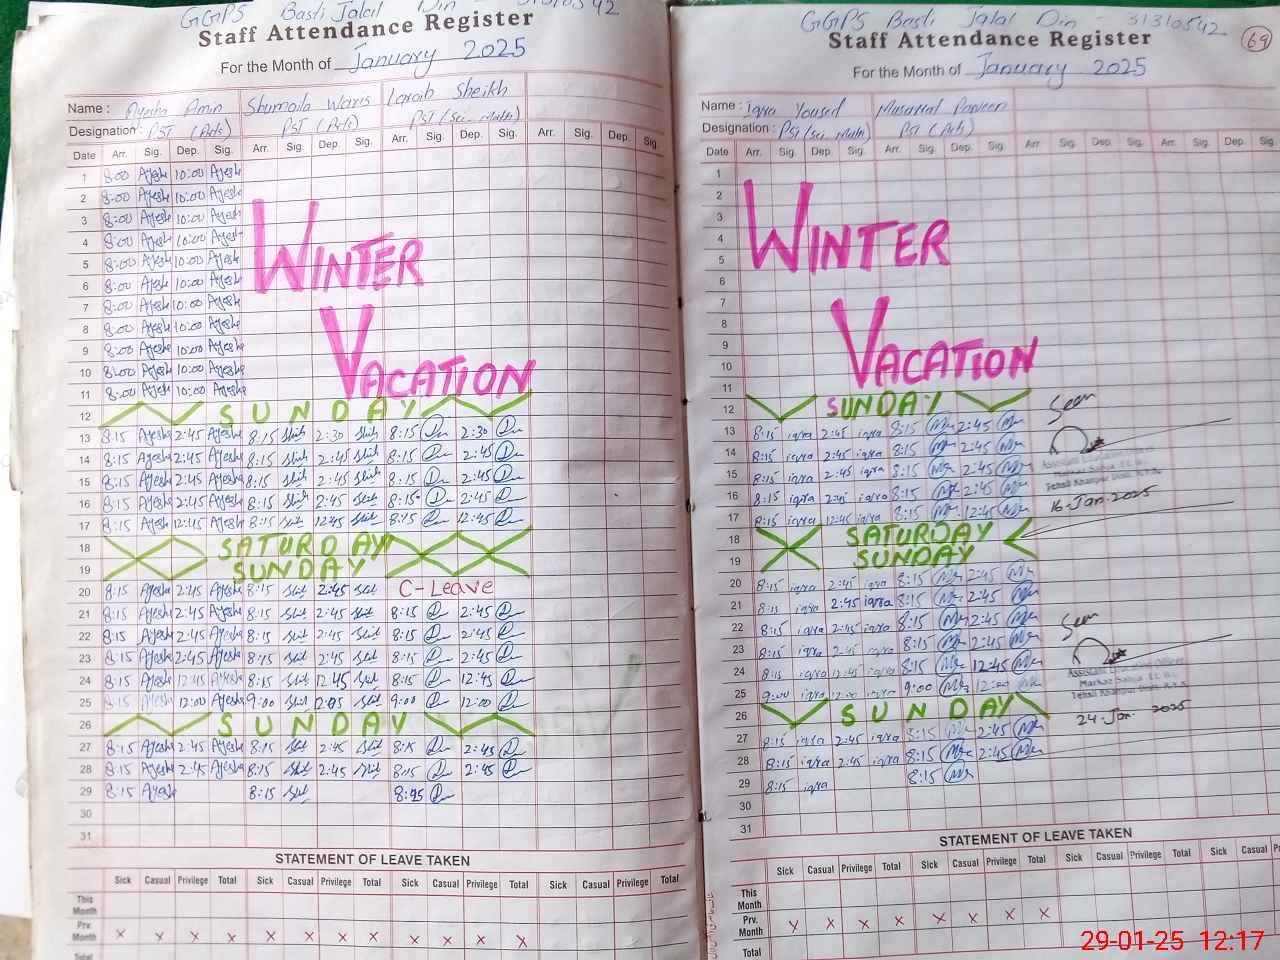 GGPS Basti Jalal Din - 31310542
Staff Attendance Register
For the Month of January 2025
Name : Ayesha Amin Shumaila Waris Laraib Sheikh
Designation : PST (Arts) PST (Arts) PST (Sci-Math)
Date Arr. Sig. Dep. Sig. Arr. Sig. Dep. Sig. Arr. Sig. Dep. Sig. Arr. Sig. Dep. Sig.
1 8:00 Ayesha 10:00 Ayesha
2 8:00 Ayesha 10:00 Ayesha
3 8:00 Ayesha 10:00 Ayesha
4 8:00 Ayesha 10:00 Ayesha
5 8:00 Ayesha 10:00 Ayesha
6 8:00 Ayesha 10:00 Ayesha
7 8:00 Ayesha 10:00 Ayesha
8 8:00 Ayesha 10:00 Ayesha
9 8:00 Ayesha 10:00 Ayesha
10 8:00 Ayesha 10:00 Ayesha
11 8:00 Ayesha 10:00 Ayesha
WINTER
VACATION
12 SUNDAY
13 8:15 Ayesha 2:45 Ayesha 8:15 2:30 8:15 2:30
14 8:15 Ayesha 2:45 Ayesha 8:15 2:45 8:15 2:45
15 8:15 Ayesha 2:45 Ayesha 8:15 2:45 8:15 2:45
16 8:15 Ayesha 2:45 Ayesha 8:15 2:45 8:15 2:45
17 8:15 Ayesha 12:45 Ayesha 8:15 12:45 8:15 12:45
18 SATURDAY
19 SUNDAY
20 8:15 Ayesha 2:45 Ayesha 8:15 2:45 C-Leave
21 8:15 Ayesha 2:45 Ayesha 8:15 2:45 8:15 2:45
22 8:15 Ayesha 2:45 Ayesha 8:15 2:45 8:15 2:45
23 8:15 Ayesha 2:45 Ayesha 8:15 2:45 8:15 2:45
24 8:15 Ayesha 12:45 Ayesha 8:15 12:45 8:15 12:45
25 8:15 Ayesha 12:00 Ayesha 9:00 9:00 12:00
26 SUNDAY
27 8:15 Ayesha 2:45 Ayesha 8:15 2:45 8:15 2:45
28 8:15 Ayesha 2:45 Ayesha 8:15 2:45 8:15 2:45
29 8:15 Ayesha 8:15 8:15
30
31
STATEMENT OF LEAVE TAKEN
Sick Casual Privilege Total Sick Casual Privilege Total Sick Casual Privilege Total Sick Casual Privilege Total
This Month
Prv. Month x x x x x x x x x x x x
Total
GGPS Basti Jalal Din - 31310542
69
Staff Attendance Register
For the Month of January 2025
Name : Iqra Yousaf Musarrat Parveen
Designation : PST (Sci-Math) PST (Arts)
Date Arr. Sig. Dep. Sig. Arr. Sig. Dep. Sig. Arr. Sig. Dep. Sig. Arr. Sig.
1
2
3
4
5
6
7
8
9
10
11
WINTER
VACATION
12 SUNDAY
13 8:15 iqra 2:45 iqra 8:15 2:45
14 8:15 iqra 2:45 iqra 8:15 2:45
15 8:15 iqra 2:45 iqra 8:15 2:45
16 8:15 iqra 2:45 iqra 8:15 2:45
17 8:15 iqra 12:45 iqra 8:15 12:45
Seen
16-Jan-2025
18 SATURDAY
19 SUNDAY
20 8:15 iqra 2:45 iqra 8:15 2:45
21 8:15 iqra 2:45 iqra 8:15 2:45
22 8:15 iqra 2:45 iqra 8:15 2:45
23 8:15 iqra 2:45 iqra 8:15 2:45
24 8:15 iqra 12:45 iqra 8:15 12:45
25 9:00 iqra 12:00 iqra 9:00 12:00
Seen
24-Jan-2025
26 SUNDAY
27 8:15 iqra 2:45 iqra 8:15 2:45
28 8:15 iqra 2:45 iqra 8:15 2:45
29 8:15 iqra 8:15
30
31
STATEMENT OF LEAVE TAKEN
Sick Casual Privilege Total Sick Casual Privilege Total Sick Casual Privilege Total Sick Casual
This Month
Prv. Month x x x x x x x x
Total
29-01-25 12:17